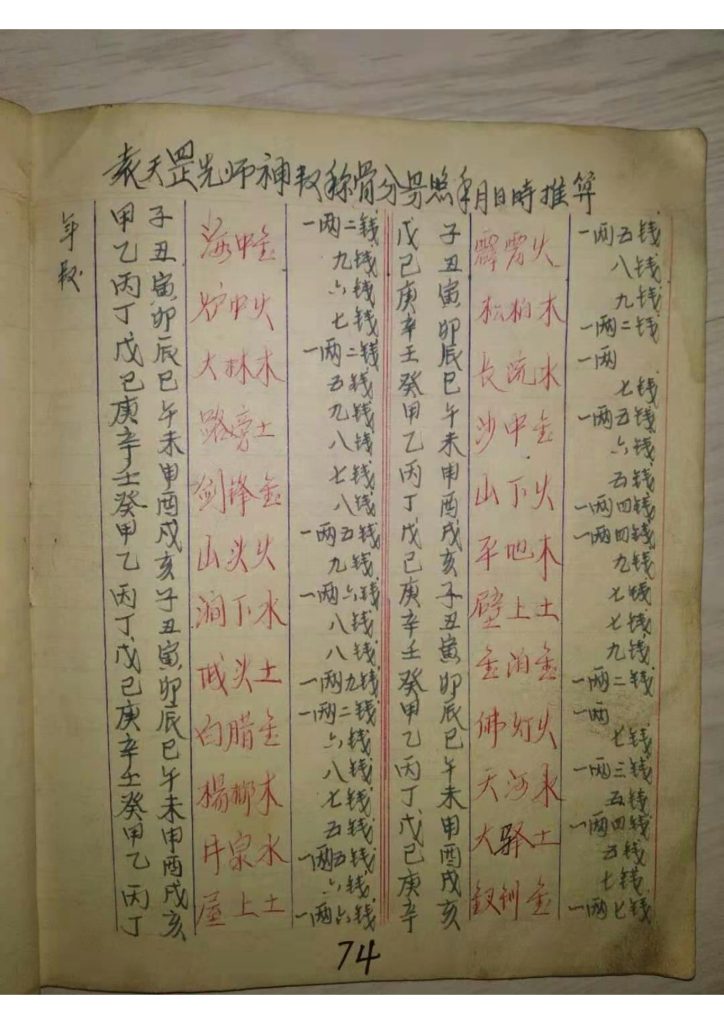 袁天罡先师神数称骨分另照年月日時推算
年数
甲 子 海中金 一两二钱 戊 子 霹雳火 一两五钱
乙 丑 九钱 己 丑 八钱
丙 寅 炉中火 六钱 庚 寅 松柏木 九钱
丁 卯 七钱 辛 卯 一两二钱
戊 辰 大林木 一两二钱 壬 辰 长流水 一两
己 巳 五钱 癸 巳 七钱
庚 午 路旁土 九钱 甲 午 沙中金 一两五钱
辛 未 八钱 乙 未 六钱
壬 申 剑锋金 七钱 丙 申 山下火 五钱
癸 酉 八钱 丁 酉 一两四钱
甲 戌 山头火 一两五钱 戊 戌 平地木 一两四钱
乙 亥 九钱 己 亥 九钱
丙 子 涧下水 一两六钱 庚 子 壁上土 七钱
丁 丑 八钱 辛 丑 七钱
戊 寅 城头土 八钱 壬 寅 金泊金 九钱
己 卯 一两九钱 癸 卯 一两二钱
庚 辰 白腊金 一两二钱 甲 辰 佛灯火 一两
辛 巳 六钱 乙 巳 七钱
壬 午 楊柳木 八钱 丙 午 天河水 一两三钱
癸 未 七钱 丁 未 五钱
甲 申 井泉水 五钱 戊 申 大驿土 一两四钱
乙 酉 一两五钱 己 酉 五钱
丙 戌 屋上土 六钱 庚 戌 钗钏金 七钱
丁 亥 一两六钱 辛 亥 一两七钱
74